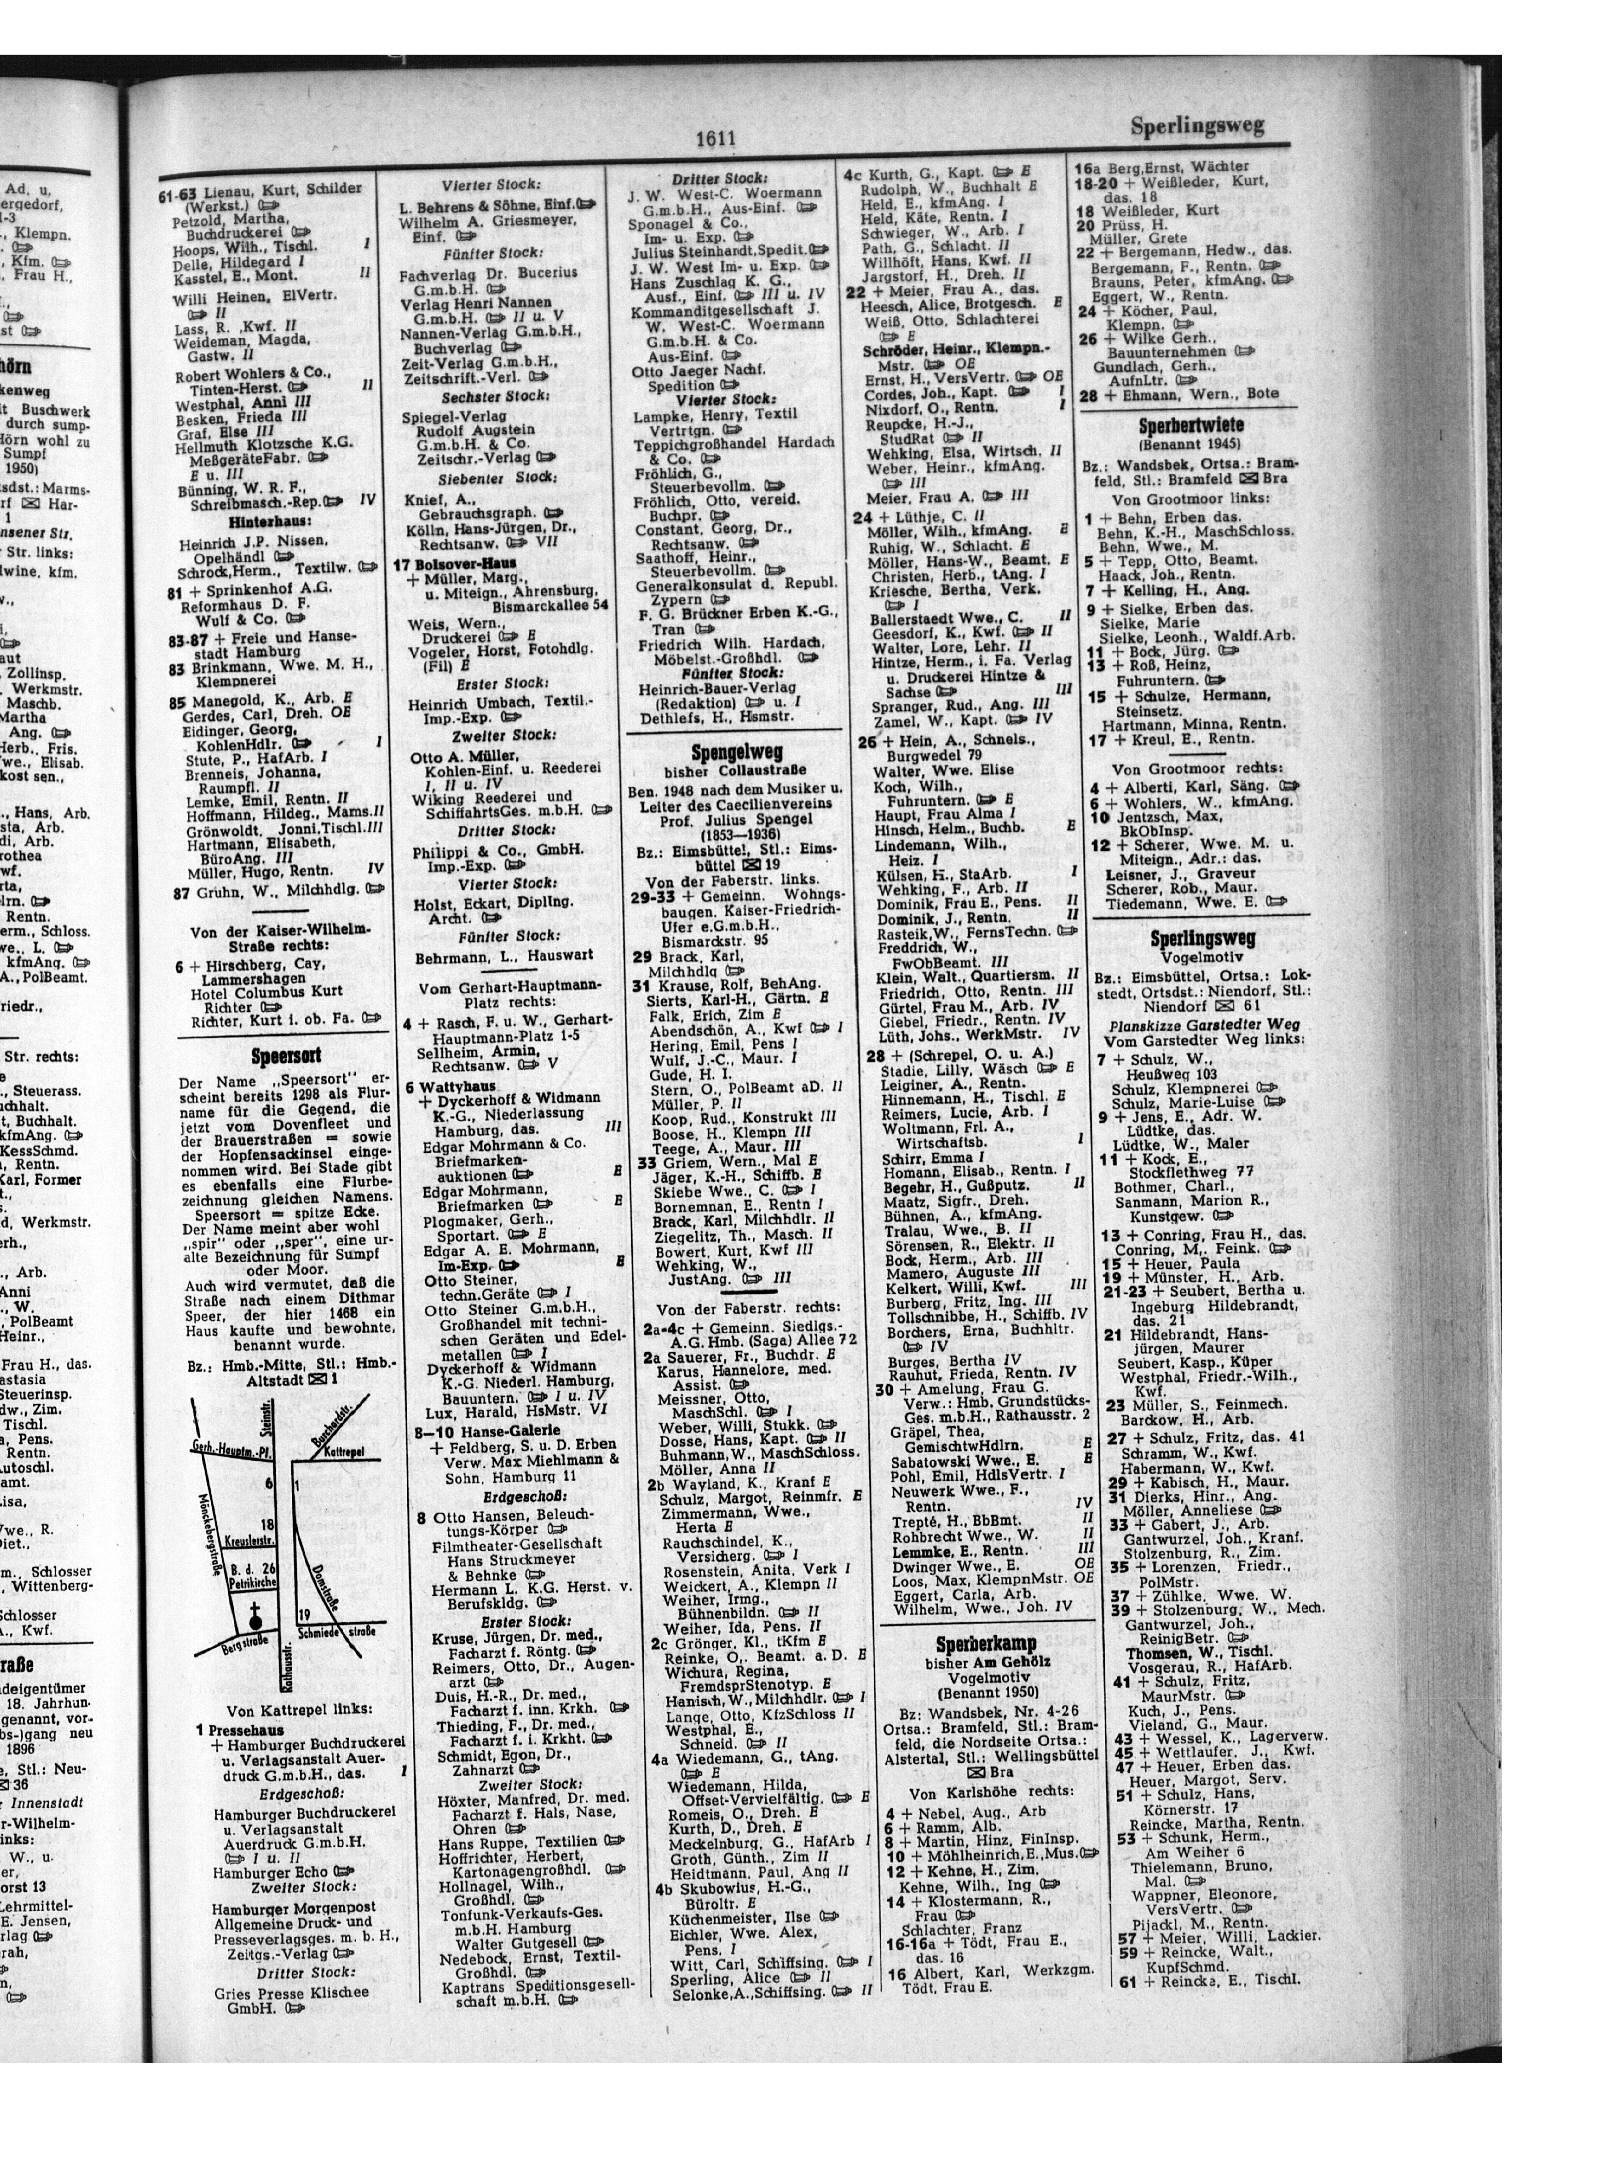 1611
Sperlingsweg
Ad. u,
ergedorf,
1-3
., Klempn.
, Kfm.
, Frau H.,
st
hörn
kenweg
it Buschwerk
durch sump-
Hörn wohl zu
Sumpf
1950)
tsdst.: Marms-
rf Har-
1
nsener Str.
Str. links:
lwine, kfm.
aut
, Zollinsp.
, Werkmstr.
Maschb.
Martha
Ang.
Herb., Fris.
we., Elisab.
kost sen.,
., Hans, Arb.
sta, Arb.
di, Arb.
rothea
wf.
rta,
lrn.
Rentn.
erm., Schloss.
we., L.
kfmAng.
A., PolBeamt.
riedr.,
Str. rechts:
e
., Steuerass.
uchhalt.
t, Buchhalt.
kfmAng.
KessSchmd.
, Rentn.
Karl, Former
d, Werkmstr.
erh.,
., Arb.
Anni
., W.
, PolBeamt
Heinr.,
Frau H., das.
astasia
Steuerinsp.
dw., Zim.
Tischl.
a, Pens.
Rentn.
utoschl.
amt.
isa,
we., R.
Diet.,
m., Schlosser
, Wittenberg-
Schlosser
., Kwf.
raße
ndeigentümer
18. Jahrhun-
genannt, vor-
bs-)gang neu
1896
e, Stl.: Neu-
36
r Innenstadt
r-Wilhelm-
inks:
W., u.
er,
orst 13
Lehrmittel-
E. Jensen,
rlag
rah,
n,
61-63 Lienau, Kurt, Schilder
(Werkst.)
Petzold, Martha,
Buchdruckerei
Hoops, Wilh., Tischl. I
Delle, Hildegard I
Kasstel, E., Mont. II
Willi Heinen, ElVertr.
II
Lass, R. ,Kwf. II
Weideman, Magda,
Gastw. II
Robert Wohlers & Co.,
Tinten-Herst. II
Westphal, Anni III
Besken, Frieda III
Graf, Else III
Hellmuth Klotzsche K.G.
MeßgeräteFabr.
E u. III
Bünning, W. R. F.,
Schreibmasch.-Rep. IV
Hinterhaus:
Heinrich J.P. Nissen,
Opelhändl
Schrock,Herm., Textilw.
81 + Sprinkenhof A.G.
Reformhaus D. F.
Wulf & Co.
83-87 + Freie und Hanse-
stadt Hamburg
83 Brinkmann, Wwe. M. H.,
Klempnerei
85 Manegold, K., Arb. E
Gerdes, Carl, Dreh. OE
Eidinger, Georg,
KohlenHdlr. I
Stute, P., HafArb. I
Brenneis, Johanna,
Raumpfl. II
Lemke, Emil, Rentn. II
Hoffmann, Hildeg., Mams. II
Grönwoldt, Jonni,Tischl. III
Hartmann, Elisabeth,
BüroAng. III
Müller, Hugo, Rentn. IV
87 Gruhn, W., Milchhdlg.
Von der Kaiser-Wilhelm-
Straße rechts:
6 + Hirschberg, Cay,
Lammershagen
Hotel Columbus Kurt
Richter
Richter, Kurt i. ob. Fa.
Speersort
Der Name „Speersort" er-
scheint bereits 1298 als Flur-
name für die Gegend, die
jetzt vom Dovenfleet und
der Brauerstraßen = sowie
der Hopfensackinsel einge-
nommen wird. Bei Stade gibt
es ebenfalls eine Flurbe-
zeichnung gleichen Namens.
Speersort = spitze Ecke.
Der Name meint aber wohl
„spir" oder „sper", eine ur-
alte Bezeichnung für Sumpf
oder Moor.
Auch wird vermutet, daß die
Straße nach einem Dithmar
Speer, der hier 1468 ein
Haus kaufte und bewohnte,
benannt wurde.
Bz.: Hmb.-Mitte, Stl.: Hmb.-
Altstadt 1
Steinstr.
Burchardstr.
Gerh.-Hauptm.-Pl.
Kattrepel
6
1
Mönckebergstraße
18
Kreuslerstr.
B. d. 26
Petrikirche
Domstraße
19
Schmiede straße
Bergstraße
Rathausstr.
Von Kattrepel links:
1 Pressehaus
+ Hamburger Buchdruckerei
u. Verlagsanstalt Auer-
druck G.m.b.H., das. I
Erdgeschoß:
Hamburger Buchdruckerei
u. Verlagsanstalt
Auerdruck G.m.b.H.
I u. II
Hamburger Echo
Zweiter Stock:
Hamburger Morgenpost
Allgemeine Druck- und
Presseverlagsges. m. b. H.,
Zeitgs.-Verlag
Dritter Stock:
Gries Presse Klischee
GmbH.
Vierter Stock:
L. Behrens & Söhne, Einf.
Wilhelm A. Griesmeyer,
Einf.
Fünfter Stock:
Fachverlag Dr. Bucerius
G.m.b.H.
Verlag Henri Nannen
G.m.b.H. II u. V
Nannen-Verlag G.m.b.H.,
Buchverlag
Zeit-Verlag G.m.b.H.,
Zeitschrift.-Verl.
Sechster Stock:
Spiegel-Verlag
Rudolf Augstein
G.m.b.H. & Co.
Zeitschr.-Verlag
Siebenter Stock:
Knief, A.,
Gebrauchsgraph.
Kölln, Hans-Jürgen, Dr.,
Rechtsanw. VII
17 Bolsover-Haus
+ Müller, Marg.,
u. Miteign., Ahrensburg,
Bismarckallee 54
Weis, Wern.,
Druckerei E
Vogeler, Horst, Fotohdlg.
(Fil) E
Erster Stock:
Heinrich Umbach, Textil.-
Imp.-Exp.
Zweiter Stock:
Otto A. Müller,
Kohlen-Einf. u. Reederei
I, II u. IV
Wiking Reederei und
SchiffahrtsGes. m.b.H.
Dritter Stock:
Philippi & Co., GmbH.
Imp.-Exp.
Vierter Stock:
Holst, Eckart, Dipling.
Archt.
Fünfter Stock:
Behrmann, L., Hauswart
Vom Gerhart-Hauptmann-
Platz rechts:
4 + Rasch, F. u. W., Gerhart-
Hauptmann-Platz 1-5
Sellheim, Armin,
Rechtsanw. V
6 Wattyhaus
+ Dyckerhoff & Widmann
K.-G., Niederlassung
Hamburg, das. III
Edgar Mohrmann & Co.
Briefmarken-
auktionen E
Edgar Mohrmann,
Briefmarken E
Plogmaker, Gerh.,
Sportart. E
Edgar A. E. Mohrmann,
Im-Exp. E
Otto Steiner,
techn.Geräte I
Otto Steiner G.m.b.H.,
Großhandel mit techni-
schen Geräten und Edel-
metallen I
Dyckerhoff & Widmann
K.-G. Niederl. Hamburg,
Bauuntern. I u. IV
Lux, Harald, HsMstr. VI
8—10 Hanse-Galerie
+ Feldberg, S. u. D. Erben
Verw. Max Miehlmann &
Sohn, Hamburg 11
Erdgeschoß:
8 Otto Hansen, Beleuch-
tungs-Körper
Filmtheater-Gesellschaft
Hans Struckmeyer
& Behnke
Hermann L. K.G. Herst. v.
Berufskldg.
Erster Stock:
Kruse, Jürgen, Dr. med.,
Facharzt f. Röntg.
Reimers, Otto, Dr., Augen-
arzt
Duis, H.-R., Dr. med.,
Facharzt f. inn. Krkh.
Thieding, F., Dr. med.,
Facharzt f. i. Krkht.
Schmidt, Egon, Dr.,
Zahnarzt
Zweiter Stock:
Höxter, Manfred, Dr. med.
Facharzt f. Hals, Nase,
Ohren
Hans Ruppe, Textilien
Hoffrichter, Herbert,
Kartonagengroßhdl.
Hollnagel, Wilh.,
Großhdl.
Tonfunk-Verkaufs-Ges.
m.b.H. Hamburg
Walter Gutgesell
Nedebock, Ernst, Textil-
Großhdl.
Kaptrans Speditionsgesell-
schaft m.b.H.
Dritter Stock:
J. W. West-C. Woermann
G.m.b.H., Aus-Einf.
Sponagel & Co.,
Im- u. Exp.
Julius Steinhardt,Spedit.
J. W. West Im- u. Exp.
Hans Zuschlag K. G.,
Ausf., Einf. III u. IV
Kommanditgesellschaft J.
W. West-C. Woermann
G.m.b.H. & Co.
Aus-Einf.
Otto Jaeger Nachf.
Spedition
Vierter Stock:
Lampke, Henry, Textil
Vertrtgn.
Teppichgroßhandel Hardach
& Co.
Fröhlich, G.,
Steuerbevollm.
Fröhlich, Otto, vereid.
Buchpr.
Constant, Georg, Dr.,
Rechtsanw.
Saathoff, Heinr.,
Steuerbevollm.
Generalkonsulat d. Republ.
Zypern
F. G. Brückner Erben K.-G.,
Tran
Friedrich Wilh. Hardach,
Möbelst.-Großhdl.
Fünfter Stock:
Heinrich-Bauer-Verlag
(Redaktion) u. I
Dethlefs, H., Hsmstr.
Spengelweg
bisher Collaustraße
Ben. 1948 nach dem Musiker u.
Leiter des Caecilienvereins
Prof. Julius Spengel
(1853—1936)
Bz.: Eimsbüttel, Stl.: Eims-
büttel 19
Von der Faberstr. links.
29-33 + Gemeinn. Wohngs-
baugen. Kaiser-Friedrich-
Ufer e.G.m.b.H.,
Bismarckstr. 95
29 Brack, Karl,
Milchhdlg
31 Krause, Rolf, BehAng.
Sierts, Karl-H., Gärtn. E
Falk, Erich, Zim E
Abendschön, A., Kwf I
Hering, Emil, Pens I
Wulf, J.-C., Maur. I
Gude, H. I.
Stern, O., PolBeamt aD. II
Müller, P. II
Koop, Rud., Konstrukt III
Boose, H., Klempn III
Teege, A., Maur. III
33 Griem, Wern., Mal E
Jäger, K.-H., Schiffb. E
Skiebe Wwe., C. I
Bornemnan, E., Rentn I
Brack, Karl, Milchhdlr. II
Ziegelitz, Th., Masch. II
Bowert, Kurt, Kwf III
Wehking, W.,
JustAng. III
Von der Faberstr. rechts:
2a-4c + Gemeinn. Siedlgs.-
A.G. Hmb. (Saga) Allee 72
2a Sauerer, Fr., Buchdr. E
Karus, Hannelore, med.
Assist.
Meissner, Otto,
MaschSchl. I
Weber, Willi, Stukk.
Dosse, Hans, Kapt. II
Buhmann,W., MaschSchloss.
Möller, Anna II
2b Wayland, K., Kranf E
Schulz, Margot, Reinmfr. E
Zimmermann, Wwe.,
Herta E
Rauchschindel, K.,
Versicherg. I
Rosenstein, Anita, Verk I
Weickert, A., Klempn II
Weiher, Irmg.,
Bühnenbildn. II
Weiher, Ida, Pens. II
2c Grönger, Kl., tKfm E
Reinke, O., Beamt. a. D. E
Wichura, Regina,
FremdsprStenotyp. E
Hanisch,W.,Milchhdlr. I
Lange, Otto, KfzSchloss II
Westphal, E.,
Schneid. II
4a Wiedemann, G., tAng.
E
Wiedemann, Hilda,
Offset-Vervielfältig. E
Romeis, O., Dreh. E
Kurth, D., Dreh. E
Meckelnburg, G., HafArb I
Groth, Günth., Zim II
Heidtmann, Paul, Ang II
4b Skubowius, H.-G.,
Büroltr. E
Küchenmeister, Ilse
Eichler, Wwe. Alex,
Pens. I
Witt, Carl, Schiffsing. I
Sperling, Alice II
Selonke,A.,Schiffsing. II
4c Kurth, G., Kapt. E
Rudolph, W., Buchhalt E
Held, E., kfmAng. I
Held, Käte, Rentn. I
Schwieger, W., Arb. I
Path, G., Schlacht. II
Willhöft, Hans, Kwf. II
Jargstorf, H., Dreh. II
22 + Meier, Frau A., das.
Heesch, Alice, Brotgesch. E
Weiß, Otto, Schlachterei
E
Schröder, Heinr., Klempn.-
Mstr. OE
Ernst, H., VersVertr. OE
Cordes, Joh., Kapt. I
Nixdorf, O., Rentn. I
Reupcke, H.-J.,
StudRat II
Wehking, Elsa, Wirtsch. II
Weber, Heinr., kfmAng.
III
Meier, Frau A. III
24 + Lüthje, C. II
Möller, Wilh., kfmAng. E
Ruhig, W., Schlacht. E
Möller, Hans-W., Beamt. E
Christen, Herb., tAng. I
Kriesche, Bertha, Verk.
I
Ballerstaedt Wwe., C. II
Geesdorf, K., Kwf. II
Walter, Lore, Lehr. II
Hintze, Herm., i. Fa. Verlag
u. Druckerei Hintze &
Sachse III
Spranger, Rud., Ang. III
Zamel, W., Kapt. IV
26 + Hein, A., Schnels.,
Burgwedel 79
Walter, Wwe. Elise
Koch, Wilh.,
Fuhruntern. E
Haupt, Frau Alma I
Hinsch, Helm., Buchb. E
Lindemann, Wilh.,
Heiz. I
Külsen, H., StaArb. I
Wehking, F., Arb. II
Dominik, Frau E., Pens. II
Dominik, J., Rentn. II
Rasteik,W., FernsTechn.
Freddrich, W.,
FwObBeamt. III
Klein, Walt., Quartiersm. II
Friedrich, Otto, Rentn. III
Gürtel, Frau M., Arb. IV
Giebel, Friedr., Rentn. IV
Lüth, Johs., WerkMstr. IV
28 + (Schrepel, O. u. A.)
Stadie, Lilly, Wäsch E
Leiginer, A., Rentn.
Hinnemann, H., Tischl. E
Reimers, Lucie, Arb. I
Woltmann, Frl. A.,
Wirtschaftsb. I
Schirr, Emma I
Homann, Elisab., Rentn. I
Begehr, H., Gußputz. II
Maatz, Sigfr., Dreh.
Bühnen, A., kfmAng.
Tralau, Wwe., B. II
Sörensen, R., Elektr. II
Bock, Herm., Arb. III
Mamero, Auguste III
Kelkert, Willi, Kwf. III
Burberg, Fritz, Ing. III
Tollschnibbe, H., Schiffb. IV
Borchers, Erna, Buchhltr.
IV
Burges, Bertha IV
Rauhut, Frieda, Rentn. IV
30 + Amelung, Frau G.
Verw.: Hmb. Grundstücks-
Ges. m.b.H., Rathausstr. 2
Gräpel, Thea,
GemischtwHdlrn. E
Sabatowski Wwe., E. E
Pohl, Emil, HdlsVertr. I
Neuwerk Wwe., F.,
Rentn. IV
Trepté, H., BbBmt. II
Rohbrecht Wwe., W. II
Lemmke, E., Rentn. III
Dwinger Wwe., E. OE
Loos, Max, KlempnMstr. OE
Eggert, Carla, Arb.
Wilhelm, Wwe., Joh. IV
Sperberkamp
bisher Am Gehölz
Vogelmotiv
(Benannt 1950)
Bz: Wandsbek, Nr. 4-26
Ortsa.: Bramfeld, Stl.: Bram-
feld, die Nordseite Ortsa.:
Alstertal, Stl.: Wellingsbüttel
Bra
Von Karlshöhe rechts:
4 + Nebel, Aug., Arb
6 + Ramm, Alb.
8 + Martin, Hinz, FinInsp.
10 + Möhlheinrich,E.,Mus.
12 + Kehne, H., Zim.
Kehne, Wilh., Ing
14 + Klostermann, R.,
Frau
Schlachter, Franz
16-16a + Tödt, Frau E.,
das. 16
16 Albert, Karl, Werkzgm.
Tödt, Frau E.
16a Berg,Ernst, Wächter
18-20 + Weißleder, Kurt,
das. 18
18 Weißleder, Kurt
20 Prüss, H.
Müller, Grete
22 + Bergemann, Hedw., das.
Bergemann, F., Rentn.
Brauns, Peter, kfmAng.
Eggert, W., Rentn.
24 + Köcher, Paul,
Klempn.
26 + Wilke Gerh.,
Bauunternehmen
Gundlach, Gerh.,
AufnLtr.
28 + Ehmann, Wern., Bote
Sperbertwiete
(Benannt 1945)
Bz.: Wandsbek, Ortsa.: Bram-
feld, Stl.: Bramfeld Bra
Von Grootmoor links:
1 + Behn, Erben das.
Behn, K.-H., MaschSchloss.
Behn, Wwe., M.
5 + Tepp, Otto, Beamt.
Haack, Joh., Rentn.
7 + Kelling, H., Ang.
9 + Sielke, Erben das.
Sielke, Marie
Sielke, Leonh., Waldf.Arb.
11 + Bock, Jürg.
13 + Roß, Heinz,
Fuhruntern.
15 + Schulze, Hermann,
Steinsetz.
Hartmann, Minna, Rentn.
17 + Kreul, E., Rentn.
Von Grootmoor rechts:
4 + Alberti, Karl, Säng.
6 + Wohlers, W., kfmAng.
10 Jentzsch, Max,
BkObInsp.
12 + Scherer, Wwe. M. u.
Miteign., Adr.: das.
Leisner, J., Graveur
Scherer, Rob., Maur.
Tiedemann, Wwe. E.
Sperlingsweg
Vogelmotiv
Bz.: Eimsbüttel, Ortsa.: Lok-
stedt, Ortsdst.: Niendorf, Stl.:
Niendorf 61
Planskizze Garstedter Weg
Vom Garstedter Weg links:
7 + Schulz, W.,
Heußweg 103
Schulz, Klempnerei
Schulz, Marie-Luise
9 + Jens, E., Adr. W.
Lüdtke, das.
Lüdtke, W., Maler
11 + Kock, E.,
Stockflethweg 77
Bothmer, Charl.,
Sanmann, Marion R.,
Kunstgew.
13 + Conring, Frau H., das.
Conring, M,. Feink.
15 + Heuer, Paula
19 + Münster, H., Arb.
21-23 + Seubert, Bertha u.
Ingeburg Hildebrandt,
das. 21
21 Hildebrandt, Hans-
jürgen, Maurer
Seubert, Kasp., Küper
Westphal, Friedr.-Wilh.,
Kwf.
23 Müller, S., Feinmech.
Barckow, H., Arb.
27 + Schulz, Fritz, das. 41
Schramm, W., Kwf.
Habermann, W., Kwf.
29 + Kabisch, H., Maur.
31 Dierks, Hinr., Ang.
Möller, Anneliese
33 + Gabert, J., Arb.
Gantwurzel, Joh., Kranf.
Stolzenburg, R., Zim.
35 + Lorenzen, Friedr.,
PolMstr.
37 + Zühlke, Wwe. W.
39 + Stolzenburg, W., Mech.
Gantwurzel, Joh.,
ReinigBetr.
Thomsen, W., Tischl.
Vosgerau, R., HafArb.
41 + Schulz, Fritz,
MaurMstr.
Kuch, J., Pens.
Vieland, G., Maur.
43 + Wessel, K., Lagerverw.
45 + Wettlaufer, J., Kwf.
47 + Heuer, Erben das.
Heuer, Margot, Serv.
51 + Schulz, Hans,
Körnerstr. 17
Reincke, Martha, Rentn.
53 + Schunk, Herm.,
Am Weiher 6
Thielemann, Bruno,
Mal.
Wappner, Eleonore,
VersVertr.
Pijackl, M., Rentn.
57 + Meier, Willi, Lackier.
59 + Reincke, Walt.,
KupfSchmd.
61 + Reincke, E., Tischl.